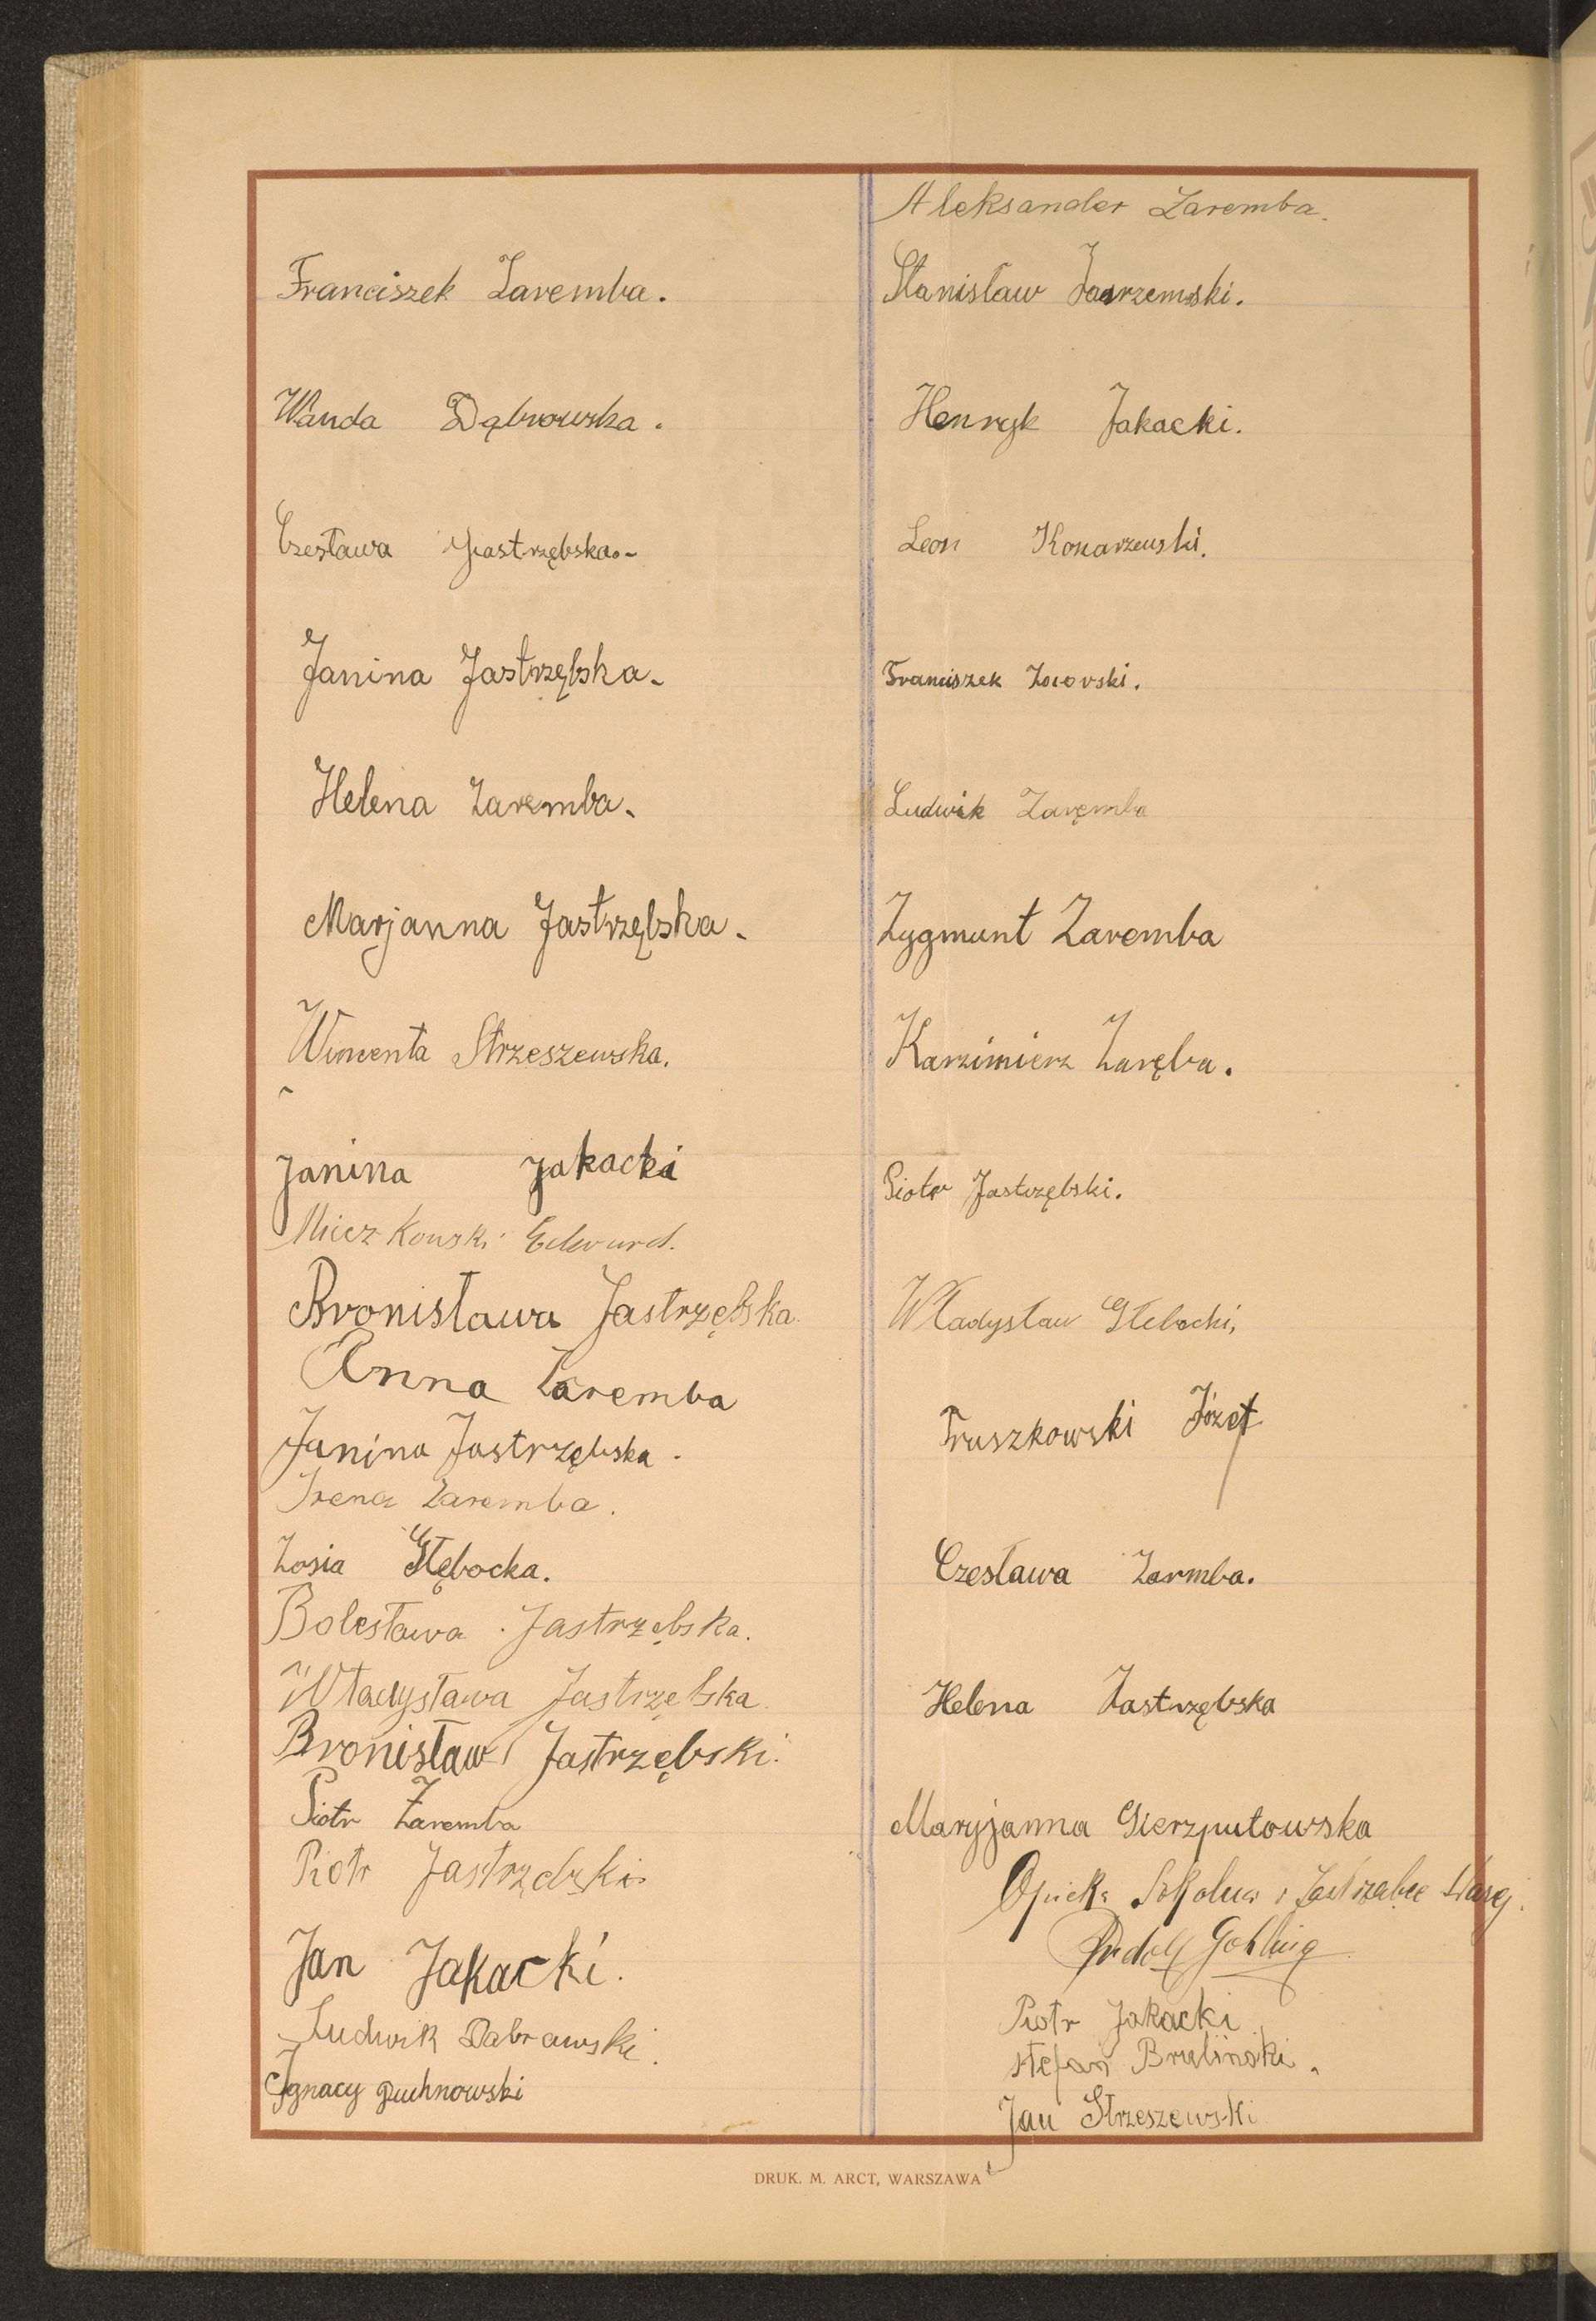 Franciszek Zaremba.
Wanda Dąbrowska.
Czesława Jastrzębska.-
Janina Jastrzębska-
Helena Zaremba-
Marjanna Jastrzębska-
Wincenta Strzeszewska.
Janina Jakacka
Mieczkowski Edward.
Bronisława Jastrzębska.
Anna Zaremba
Janina Jastrzębska.
Irena Zaremba.
Zosia Głębocka.
Bolesława Jastrzębska.
Władysława Jastrzębska.
Bronisław Jastrzębski.
Piotr Zaremba
Piotr
Jan Jakacki.
Ludwik Dabrawski.
Ignacy
Aleksander Zaremba.
Stanisław
Henryk Jakacki.
Leon Konarzewski.
Franciszek
Ludwik Zaręmba
Zygmunt Zaremba
Karzimierz Zaręba.
Piotr Jastrzębski.
Władysław Głebocki,
Truszkowski Józef
Czesława Zarmba.
Helena Jastrzębska
Maryjanna Gierzputowska
Rudolf
Piotr Jakacki
Stefan Bruliński.
Jan Strzeszewski
DRUK. M. ARCT, WARSZAWA